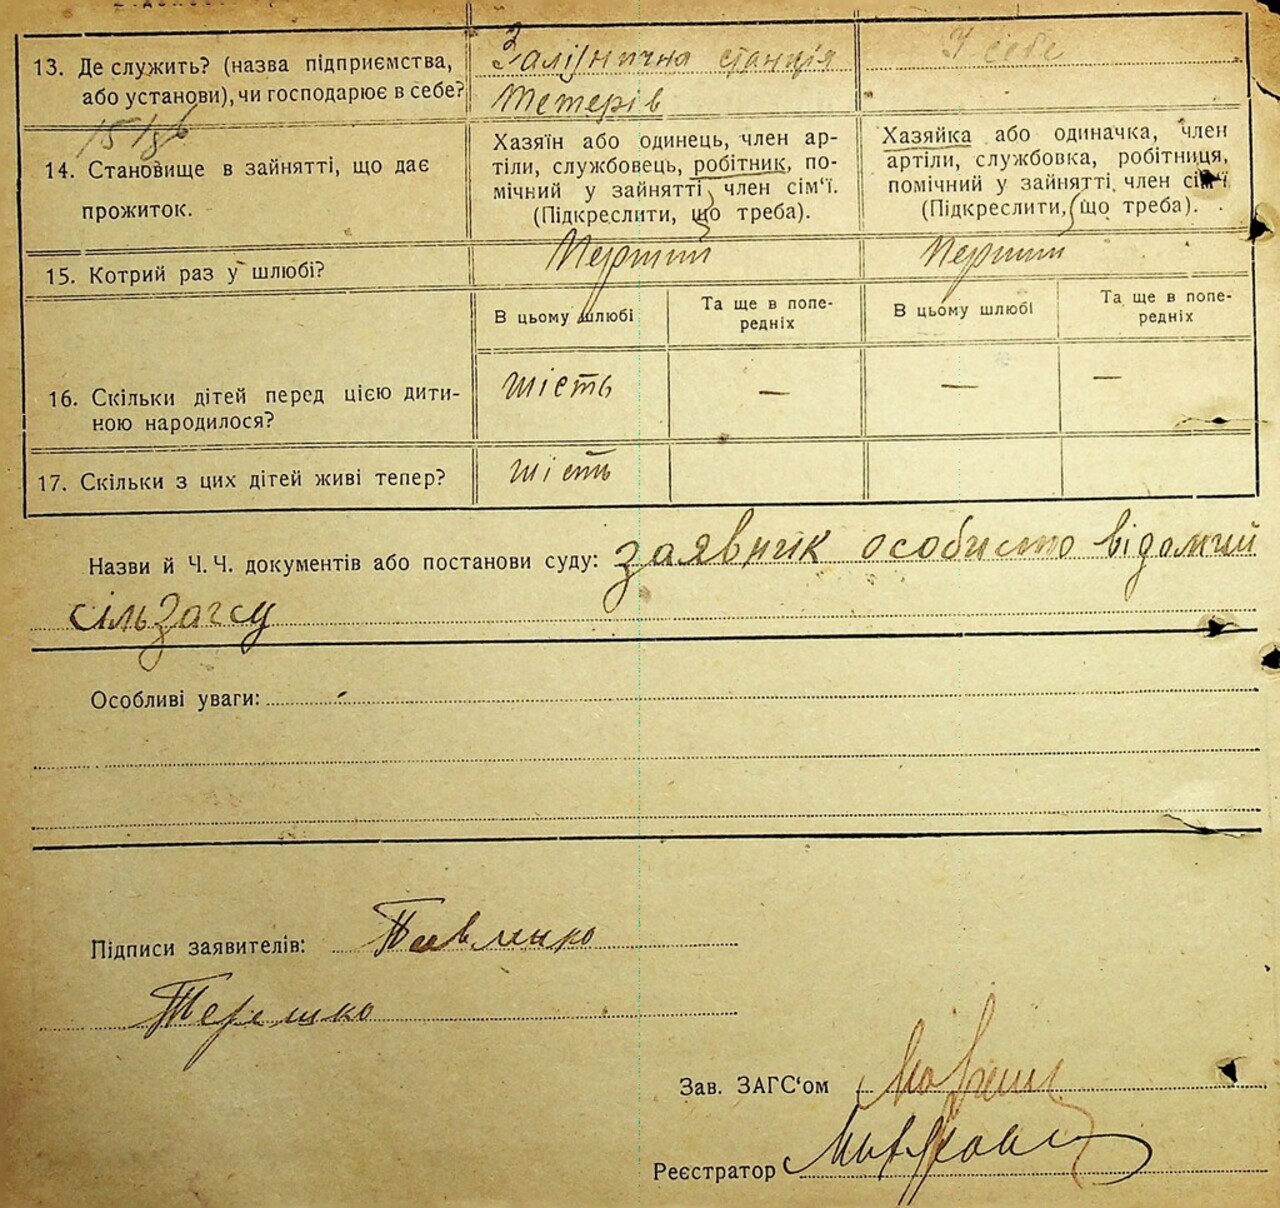 13. Де служить? (назва підприємства, або установи), чи господарює в себе?
Залізнична станція
Тетерів
У себе
14. Становище в зайнятті, що дає
прожиток.
Хазяїн або одинець, член ар-
тіли, службовець, робітник, по-
мічний у зайнятті член сім‘ї.
(Підкреслити, що треба).
Хазяйка або одиначка, член
артіли, службовка, робітниця,
помічний у зайнятті член сім‘ї
(Підкреслити, що треба).
15. Котрий раз у шлюбі?
Перший
Перший
В цьому шлюбі
Та ще в попе-
редніх
В цьому шлюбі
Та ще в попе-
редніх
16. Скільки дітей перед цією дити-
ною народилося?
шість
—
—
—
17. Скільки з цих дітей живі тепер?
шість
Назви й Ч. Ч. документів або постанови суду: заявник особисто відомий
сільзагсу
Особливі уваги:
Підписи заявителів: Павленко
Терешко
Зав. ЗАГС‘ом
Реєстратор